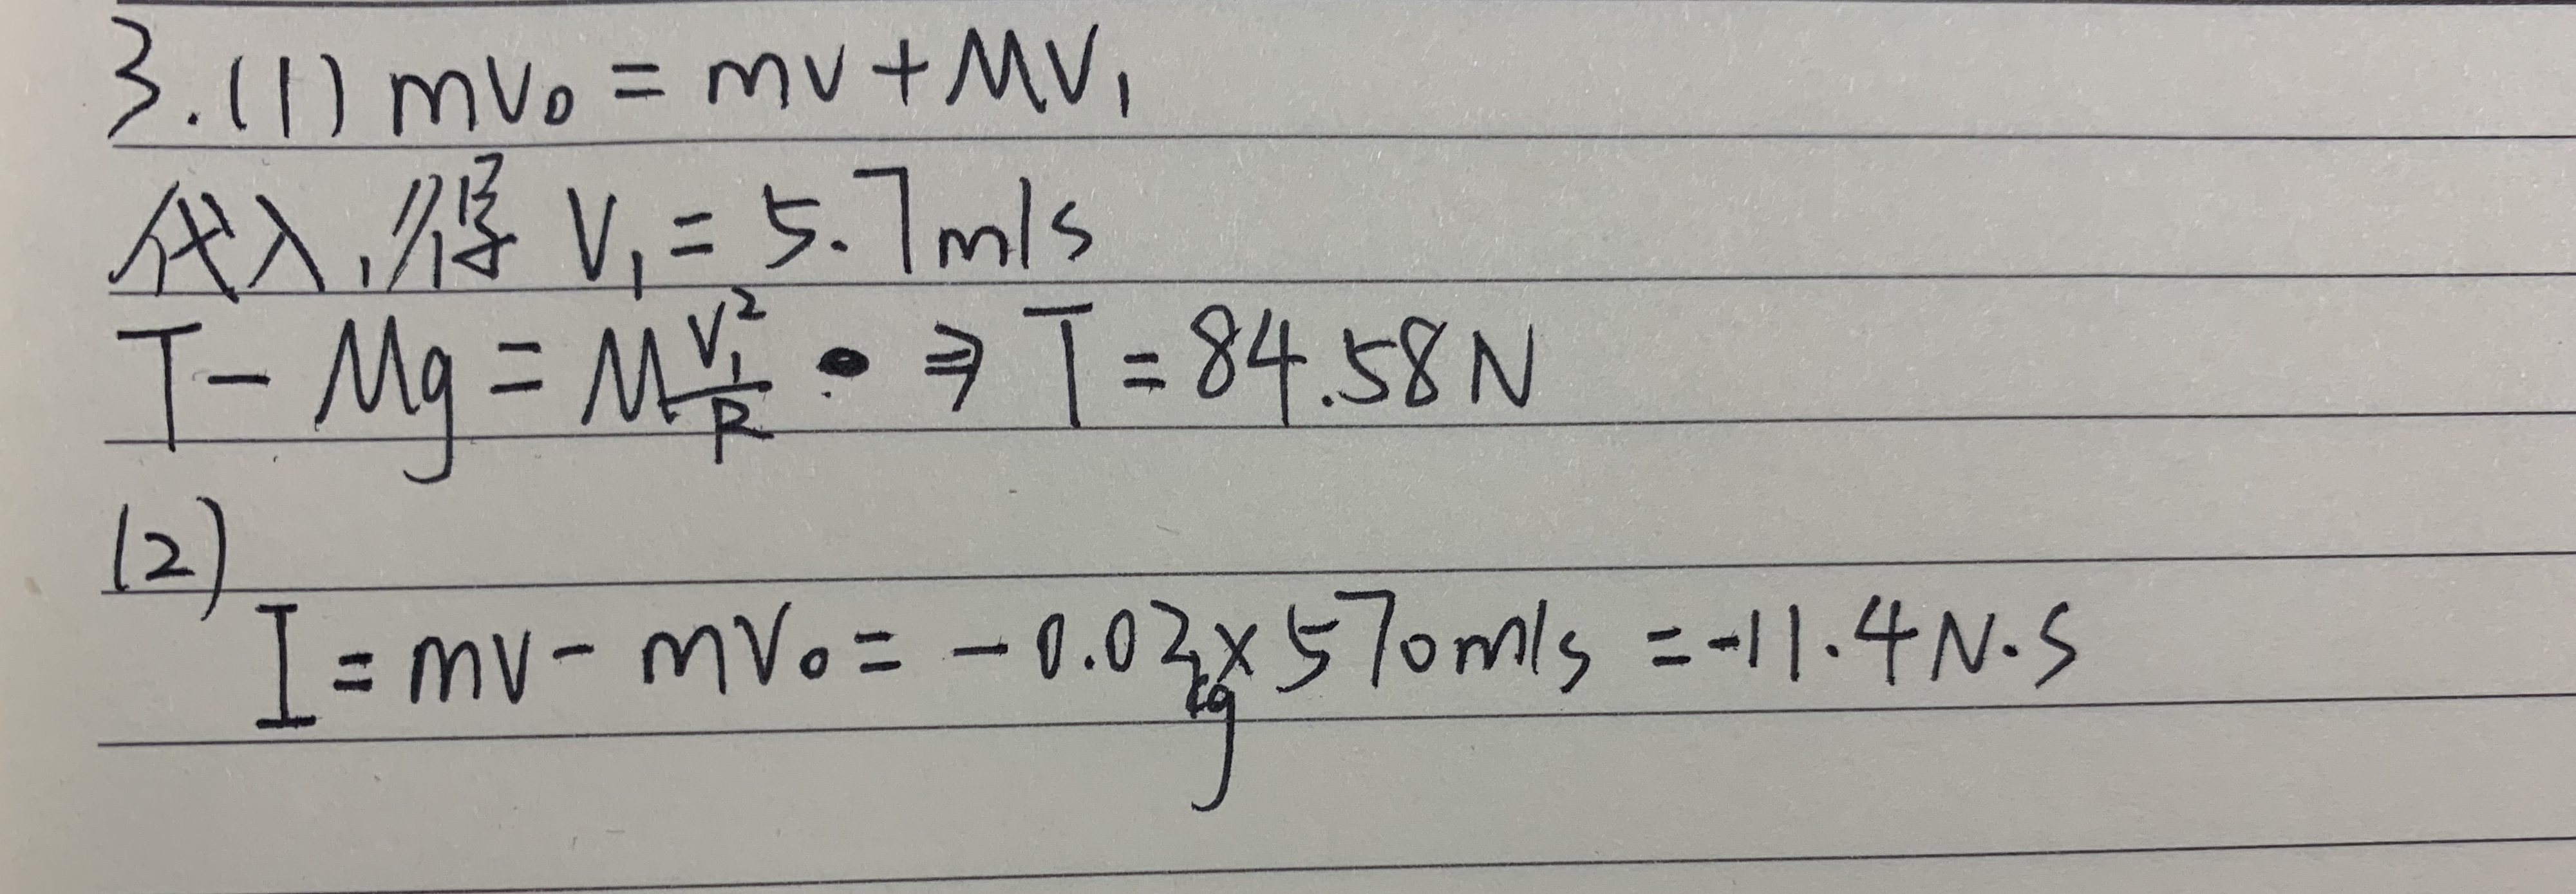 3.(1) mv₀ = mv + MV₁
代入,得 V₁ = 5.7m/s
T - Mg = M V₁²/R ⇒ T = 84.58N
(2)
I = mv - mv₀ = -0.02kg × 570m/s = -11.4N·s